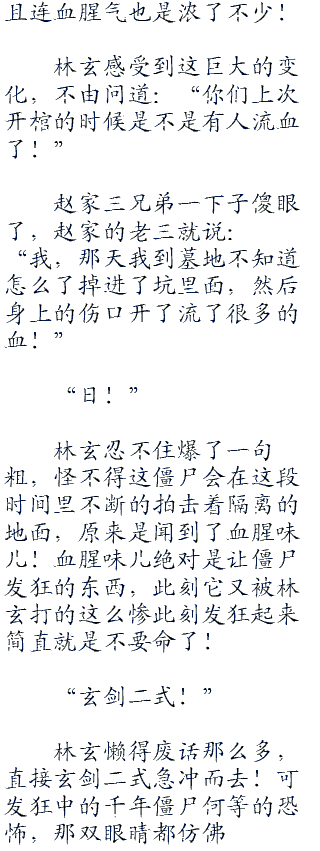 且连血腥气也是浓了不少！
林玄感受到这巨大的变
化，不由问道：“你们上次
开棺的时候是不是有人流血
了！”
赵家三兄弟一下子傻眼
了，赵家的老三就说：
“我，那天我到墓地不知道
怎么了掉进了坑里面，然后
身上的伤口开了流了很多的
血！”
“日！”
林玄忍不住爆了一句
粗，怪不得这僵尸会在这段
时间里不断的拍击着隔离的
地面，原来是闻到了血腥味
儿！血腥味儿绝对是让僵尸
发狂的东西，此刻它又被林
玄打的这么惨此刻发狂起来
简直就是不要命了！
“玄剑二式！”
林玄懒得废话那么多，
直接玄剑二式急冲而去！可
发狂中的千年僵尸何等的恐
怖，那双眼睛都仿佛